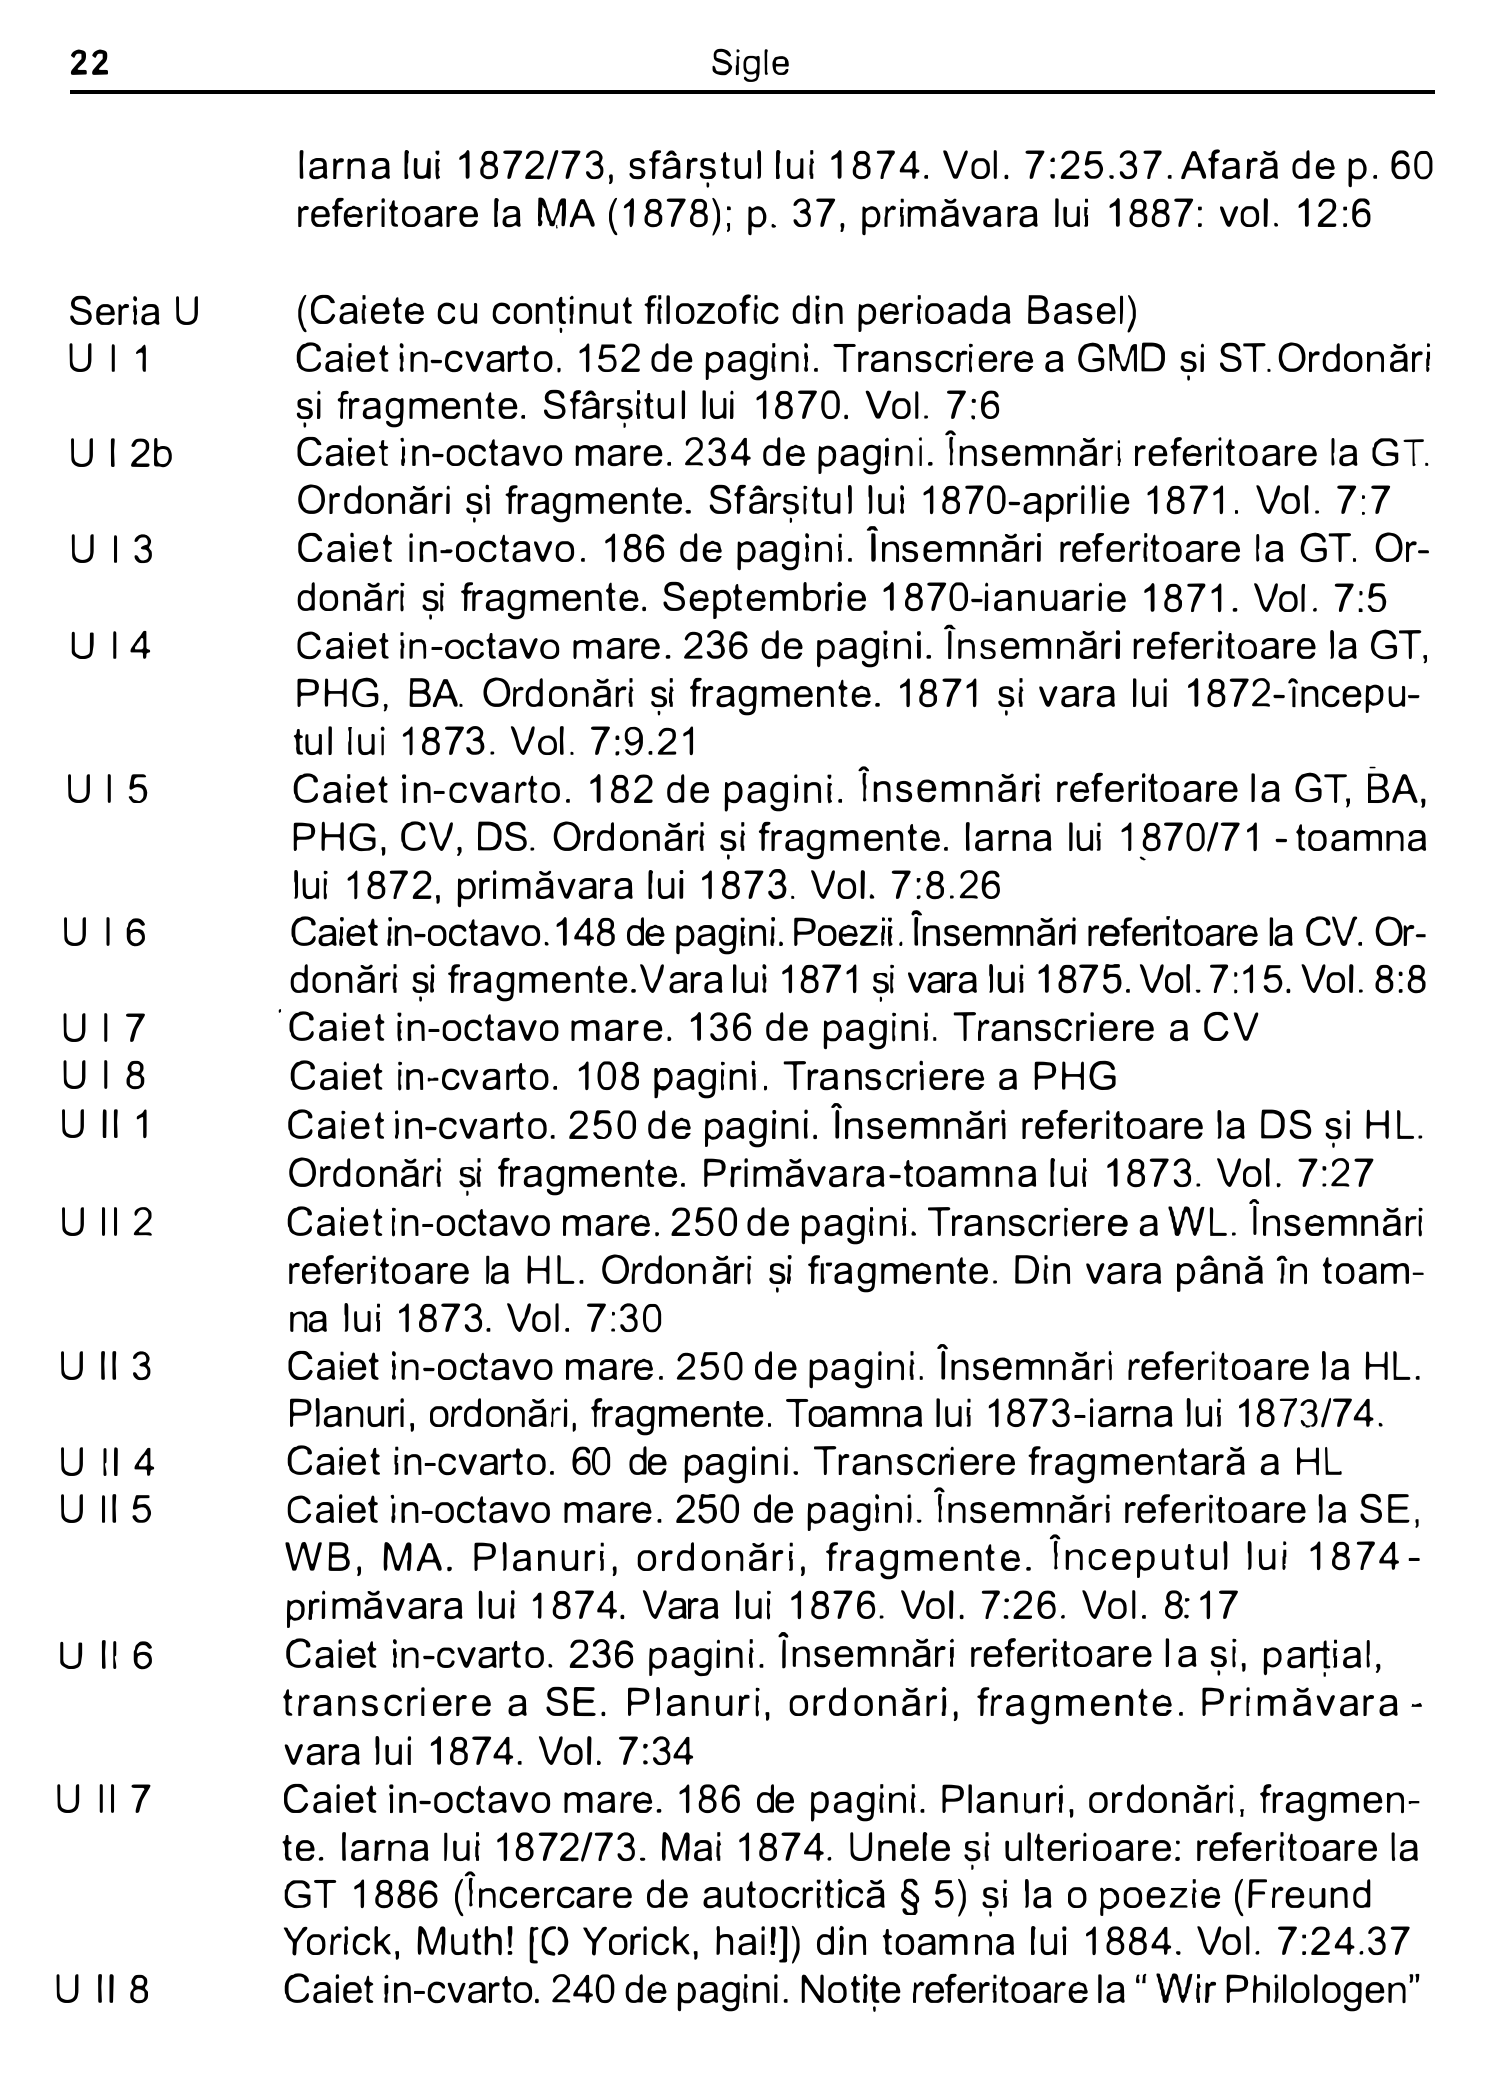 22 Sigle
Iarna lui 1872/73, sfârștul lui 1874. Vol. 7:25.37. Afară de p. 60
referitoare la MA (1878); p. 37, primăvara lui 1887: vol. 12:6
Seria U (Caiete cu conținut filozofic din perioada Basel)
U I 1 Caiet in-cvarto. 152 de pagini. Transcriere a GMD și ST. Ordonări
și fragmente. Sfârșitul lui 1870. Vol. 7:6
U I 2b Caiet in-octavo mare. 234 de pagini. Însemnări referitoare la GT.
Ordonări și fragmente. Sfârșitul lui 1870-aprilie 1871. Vol. 7:7
U I 3 Caiet in-octavo. 186 de pagini. Însemnări referitoare la GT. Or-
donări și fragmente. Septembrie 1870-ianuarie 1871. Vol. 7:5
U I 4 Caiet in-octavo mare. 236 de pagini. Însemnări referitoare la GT,
PHG, BA. Ordonări și fragmente. 1871 și vara lui 1872-începu-
tul lui 1873. Vol. 7:9.21
U I 5 Caiet in-cvarto. 182 de pagini. Însemnări referitoare la GT, BA,
PHG, CV, DS. Ordonări și fragmente. Iarna lui 1870/71 - toamna
lui 1872, primăvara lui 1873. Vol. 7:8.26
U I 6 Caiet in-octavo. 148 de pagini. Poezii. Însemnări referitoare la CV. Or-
donări și fragmente. Vara lui 1871 și vara lui 1875. Vol. 7:15. Vol. 8:8
U I 7 Caiet in-octavo mare. 136 de pagini. Transcriere a CV
U I 8 Caiet in-cvarto. 108 pagini. Transcriere a PHG
U II 1 Caiet in-cvarto. 250 de pagini. Însemnări referitoare la DS și HL.
Ordonări și fragmente. Primăvara-toamna lui 1873. Vol. 7:27
U II 2 Caiet in-octavo mare. 250 de pagini. Transcriere a WL. Însemnări
referitoare la HL. Ordonări și fragmente. Din vara până în toam-
na lui 1873. Vol. 7:30
U II 3 Caiet in-octavo mare. 250 de pagini. Însemnări referitoare la HL.
Planuri, ordonări, fragmente. Toamna lui 1873-iarna lui 1873/74.
U II 4 Caiet in-cvarto. 60 de pagini. Transcriere fragmentară a HL
U II 5 Caiet in-octavo mare. 250 de pagini. Însemnări referitoare la SE,
WB, MA. Planuri, ordonări, fragmente. Începutul lui 1874 -
primăvara lui 1874. Vara lui 1876. Vol. 7:26. Vol. 8:17
U II 6 Caiet in-cvarto. 236 pagini. Însemnări referitoare la și, parțial,
transcriere a SE. Planuri, ordonări, fragmente. Primăvara -
vara lui 1874. Vol. 7:34
U II 7 Caiet in-octavo mare. 186 de pagini. Planuri, ordonări, fragmen-
te. Iarna lui 1872/73. Mai 1874. Unele și ulterioare: referitoare la
GT 1886 (Încercare de autocritică § 5) și la o poezie (Freund
Yorick, Muth! [O Yorick, hai!]) din toamna lui 1884. Vol. 7:24.37
U II 8 Caiet in-cvarto. 240 de pagini. Notițe referitoare la “ Wir Philologen”